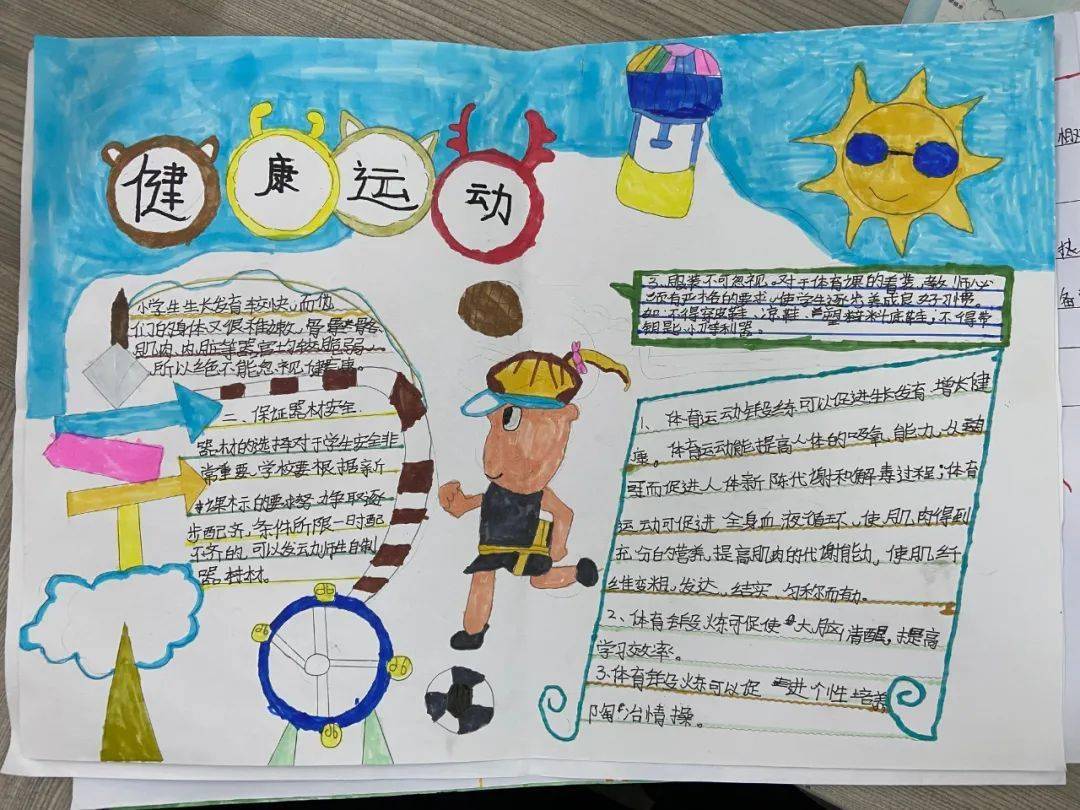 健康运动
小学生生长发育较快,而他
们的身体又很稚嫩,骨骼
肌肉、内脏等器官的较脆弱
所以绝不能忽视健康。
二、保证器材安全.
器材的选择对于学生安全非
常重要,学校要根据新
课标的要求努力争取逐
步配齐,条件所限一时配
不齐的,可以发动师生自制
器材。
3、服装不可忽视。对于体育课的着装,教师必
须有严格的要求,使学生逐步养成良好习惯。
如不得穿皮鞋、凉鞋、塑料底鞋;不得带
钥匙、小刀等利器。
1、体育运动锻练可以促进生长发育,增长健
康。体育运动能提高人体的吸氧能力,从
而促进人体新陈代谢和解毒过程;体育
运动可促进全身血液循环,使肌肉得到
充分的营养,提高肌肉的代谢能力,使肌纤
维变粗,发达、结实、匀称而有力。
2、体育锻炼可促使大脑清醒,提高
学习效率。
3.体育锻炼可以促进个性培养
陶冶情操。